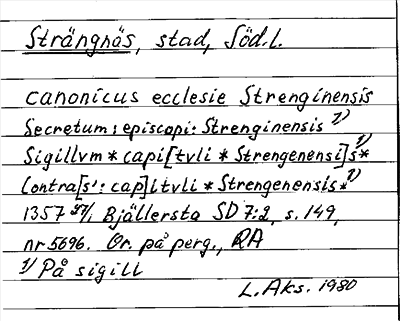 Strängnäs, stad, Söd.l.
canonicus ecclesie Strenginensis
Secretum: episcopi: Strenginensis 1)
Sigillvm * capi[tvli * Strengenensi]s* 1)
Contra[s': cap]itvli * Strengenensis* 1)
1357 27/1, Bjällersta SD 7:2, s. 149,
nr 5696. Or. på perg., RA
1) På sigill
L. Aks. 1980